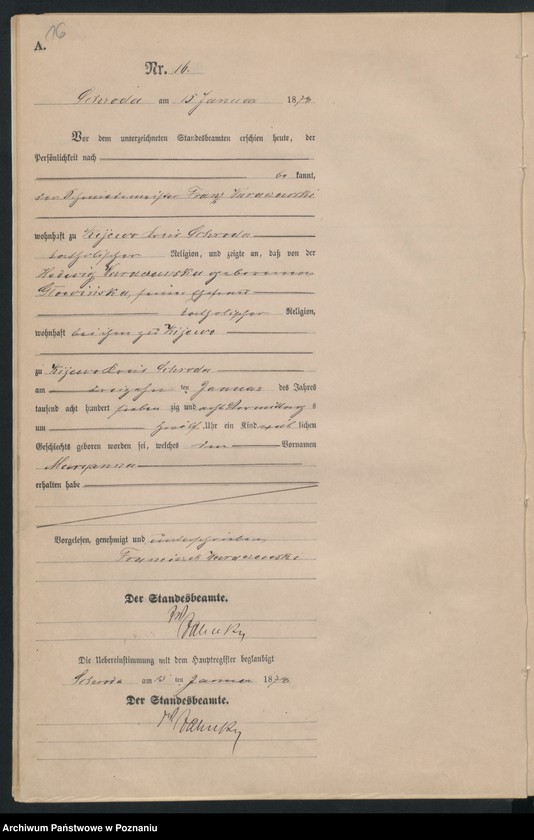 16
A.
Nr. 16.
Schroda am 15 Januar 1878
Vor dem unterzeichneten Standesbeamten erschien heute, der
Persönlichkeit nach
be kannt,
der Schmiedemeister Franz
wohnhaft zu Kijewo Kreis Schroda
katholischer Religion, und zeigte an, daß von der
Hedwig geborenen
Glowińska, seiner Ehefrau
katholischer Religion,
wohnhaft bei ihm zu Kijewo
zu Kijewo Kreis Schroda
am dreizehn ten Januar des Jahres
tausend acht hundert sieben zig und acht Vormittags
um zwölf Uhr ein Kind weib lichen
Geschlechts geboren worden sei, welches den Vornamen
Maryanna
erhalten habe
Vorgelesen, genehmigt und unterschrieben
Franciszek
Der Standesbeamte.
Die Uebereinstimmung mit dem Hauptregister beglaubigt
Schroda am 15 ten Januar 1878
Der Standesbeamte.
Archiwum Państwowe w Poznaniu